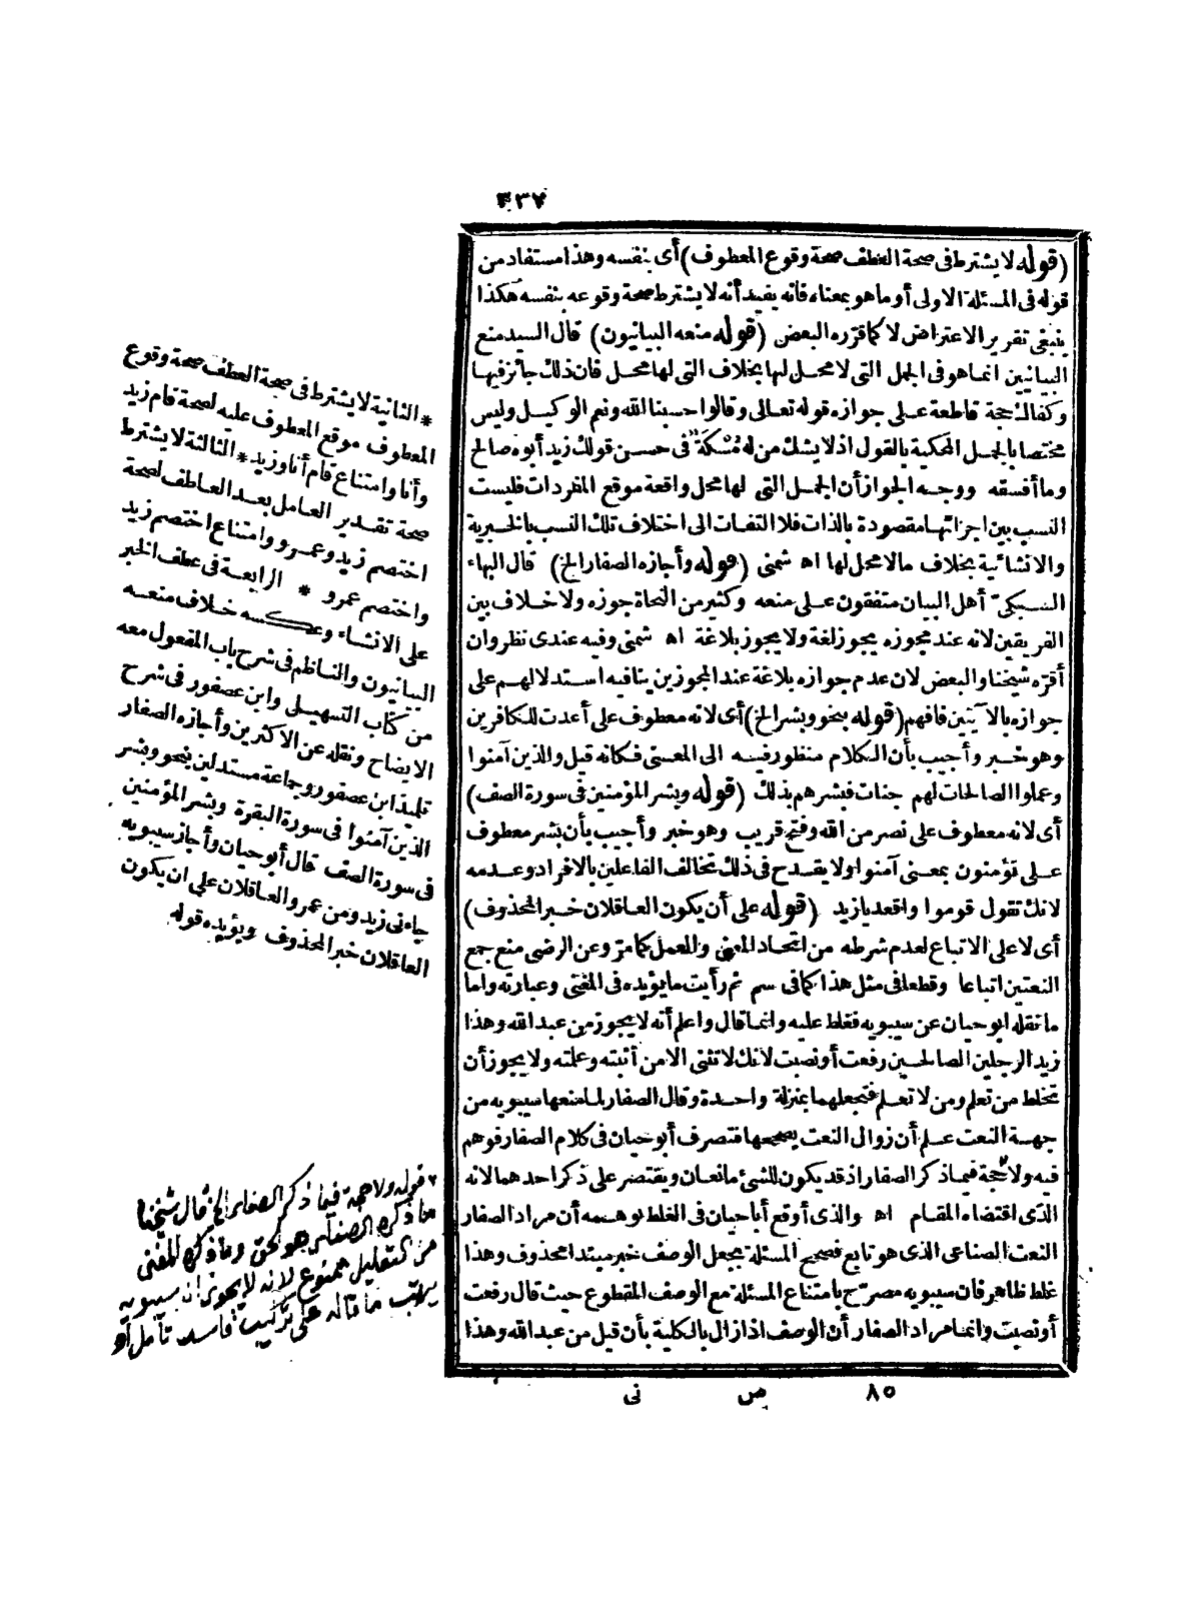 ٣٣٧
(قوله لا يشترط فى صحة العطف صحة وقوع المعطوف) أى بنفسه وهذا مستفاد من
قوله فى المسئلة الاولى أو ما هو بمعناه فانه يفيد أنه لا يشترط صحة وقوعه بنفسه هكذا
ينبغى تقرير الاعتراض لا كما قرره البعض (قوله منعه البيانيون) قال السيد منع
البيانيين انما هو فى الجمل التى لا محل لها بخلاف التى لها محل فان ذلك جائز فيها
وكفاك حجة قاطعة على جوازه قوله تعالى وقالوا حسبنا الله ونعم الوكيل وليس
مختصا بالجمل المحكية بالقول اذ لا يشك من له مُسْكَة فى حسن قولك زيد أبوه صالح
وما أفسقه ووجه الجواز أن الجمل التى لها محل واقعة موقع المفردات فليست
النسب بين اجزائها مقصودة بالذات فلا التفات الى اختلاف تلك النسب بالخبرية
والانشائية بخلاف مالا محل لها اه شمنى (قوله وأجازه الصفار الخ) قال البهاء
السبكى أهل البيان متفقون على منعه وكثير من النحاة جوزه ولا خلاف بين
الفريقين لانه عند مجوزه يجوز لغة ولا يجوز بلاغة اه شمنى وفيه عندى نظر وان
أقره شيخنا والبعض لان عدم جوازه بلاغة عند المجوزين ينافيه استدلالهم على
جوازه بالآيتين فافهم (قوله بنحو وبشر الخ) أى لانه معطوف على أعدت للكافرين
وهو خبر وأجيب بأن الكلام منظور فيه الى المعنى فكانه قيل والذين آمنوا
وعملوا الصالحات لهم جنات فبشرهم بذلك (قوله وبشر المؤمنين فى سورة الصف)
أى لانه معطوف على نصر من الله وفتح قريب وهو خبر وأجيب بأن بشر معطوف
على تؤمنون بمعنى آمنوا ولا يقدح فى ذلك تخالف الفاعلين بالافراد وعدمه
لانك تقول قوموا واقعد يا زيد (قوله على أن يكون العاقلان خبر المحذوف)
أى لا على الاتباع لعدم شرطه من اتحاد المعنى والعمل كما مر وعن الرضى منع جمع
النعتين اتباعا وقطعا فى مثل هذا كما فى سم ثم رأيت ما يؤيده فى المغنى وعبارته واما
ما نقله ابو حيان عن سيبويه فغلط عليه وانما قال واعلم أنه لا يجوز من عبد الله وهذا
زيد الرجلين الصالحين رفعت أو نصبت لانك لا تثنى الا من أثبته وعلمته ولا يجوز أن
تخلط من تعلم ومن لا تعلم فتجعلهما بمنزلة واحدة وقال الصفار لما منعها سيبويه من
جهة النعت علم أن زوال النعت يصححها فتصرف أبو حيان فى كلام الصفار فوهم
فيه ولا حجة فيما ذكر الصفار اذ قد يكون للشئ مانعان ويقتصر على ذكر احدهما لانه
الذى اقتضاه المقام اه والذى أوقع أبا حيان فى الغلط توهمه أن مراد الصفار
النعت الصناعى الذى هو تابع فصحح المسئلة بجعل الوصف خبر مبتدا محذوف وهذا
غلط ظاهر فان سيبويه مصرح بامتناع المسئلة مع الوصف المقطوع حيث قال رفعت
أو نصبت وانما مراد الصفار أن الوصف اذا زال بالكلية بأن قيل من عبد الله وهذا
٨٥ ص نى
* الثانية لا يشترط فى صحة العطف صحة وقوع
المعطوف موقع المعطوف عليه لصحة قام زيد
وأنا وامتناع قام أنا وزيد * الثالثة لا يشترط
صحة تقدير العامل بعد العاطف لصحة
اختصم زيد وعمرو وامتناع اختصم زيد
واختصم عمرو * الرابعة فى عطف الخبر
على الانشاء وعكسه خلاف منعه
البيانيون والناظم فى شرح باب المفعول معه
من كتاب التسهيل وابن عصفور فى شرح
الايضاح ونقله عن الاكثرين وأجازه الصفار
تلميذ ابن عصفور وجماعة مستدلين بنحو وبشر
الذين آمنوا فى سورة البقرة وبشر المؤمنين
فى سورة الصف قال أبو حيان وأجاز سيبويه
جاءنى زيد ومن عمرو العاقلان على ان يكون
العاقلان خبر المحذوف ويؤيده قوله
قوله ولا حجة فيما ذكر الصفار الخ قال شيخنا
ما ذكره الصفار هو الحق وما ذكره المغنى
من التعليل ممنوع لانه لا يجوز ان سيبويه
يرتب ما قاله على تركيب فاسد تأمل اه